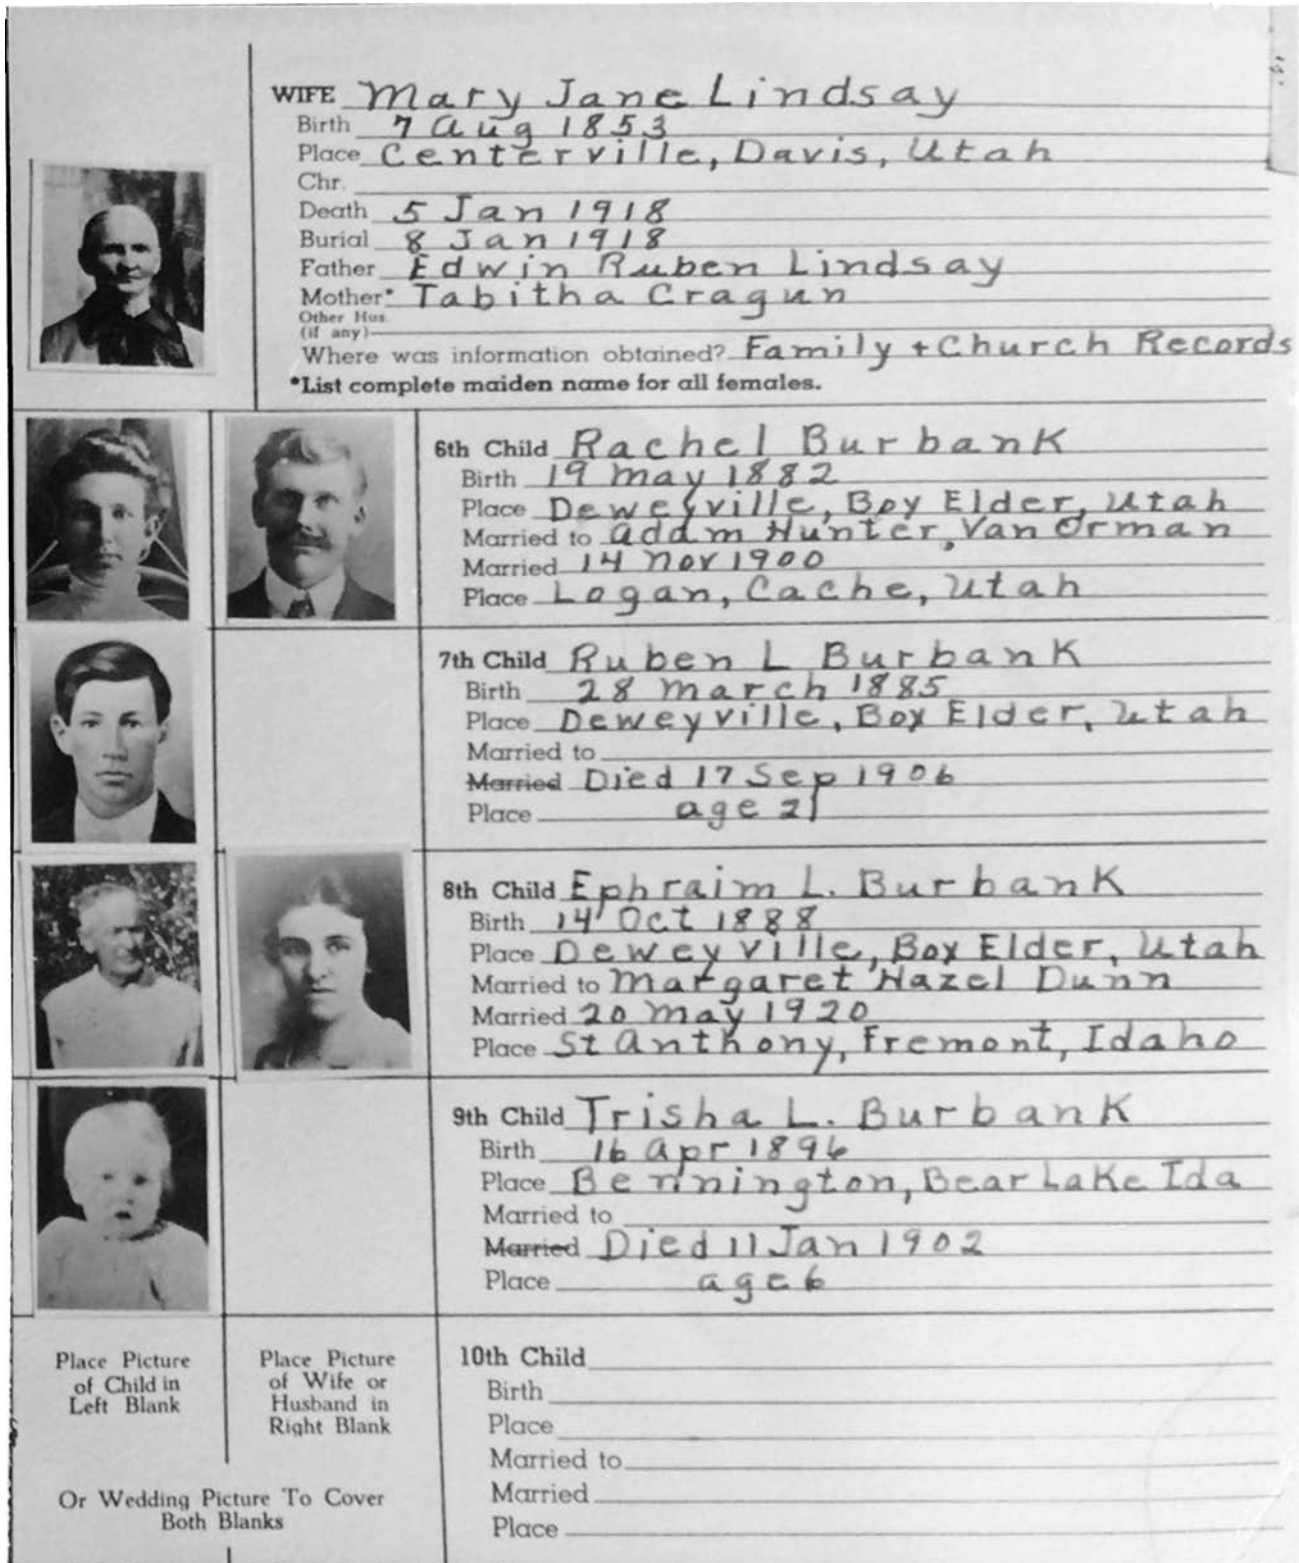 WIFE Mary Jane Lindsay
Birth 7 Aug 1853
Place Centerville, Davis, Utah
Chr.
Death 5 Jan 1918
Burial 8 Jan 1918
Father Edwin Ruben Lindsay
Mother* Tabitha Cragun
Other Hus.
(if any)
Where was information obtained? Family + Church Records
*List complete maiden name for all females.
6th Child Rachel Burbank
Birth 19 May 1882
Place Deweyville, Box Elder, Utah
Married to Adam Hunter Van Orman
Married 14 Nov 1900
Place Logan, Cache, Utah
7th Child Ruben L Burbank
Birth 28 March 1885
Place Deweyville, Box Elder, Utah
Married to
Married Died 17 Sep 1906
Place age 21
8th Child Ephraim L. Burbank
Birth 14 Oct 1888
Place Deweyville, Box Elder, Utah
Married to Margaret Hazel Dunn
Married 20 May 1920
Place St Anthony, Fremont, Idaho
9th Child Trisha L. Burbank
Birth 16 Apr 1896
Place Bennington, Bear Lake Ida
Married to
Married Died 11 Jan 1902
Place age 6
Place Picture
of Child in
Left Blank
Place Picture
of Wife or
Husband in
Right Blank
Or Wedding Picture To Cover
Both Blanks
10th Child
Birth
Place
Married to
Married
Place